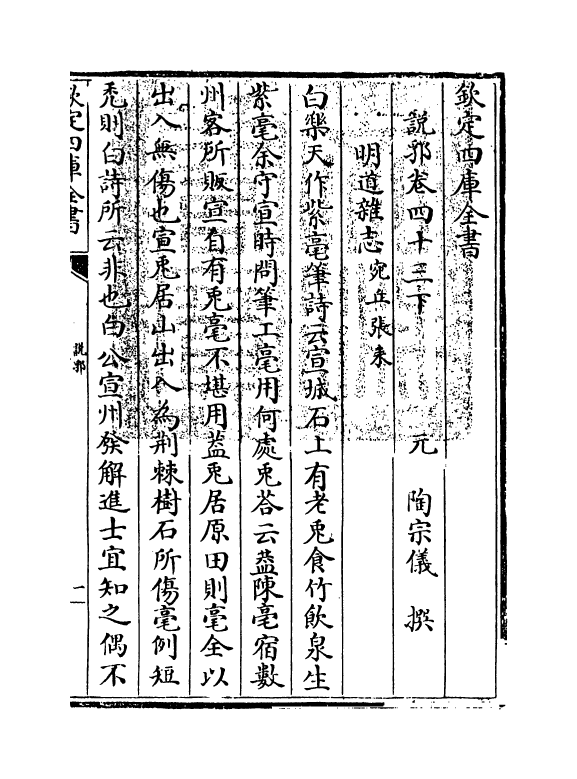 欽定四庫全書
說郛卷四十三下　元　陶宗儀　撰
明道雜志　宛丘張耒
白樂天作紫毫筆詩云宣城石上有老兎食竹飲泉生
紫毫余守宣時問筆工毫用何處兎荅云葢陳亳宿數
州客所販宣自有兎毫不堪用葢兎居原田則毫全以
出入無傷也宣兎居山出入為荆棘樹石所傷毫例短
禿則白詩所云非也白公宣州發解進士宜知之偶不
欽定四庫全書
說郛
一